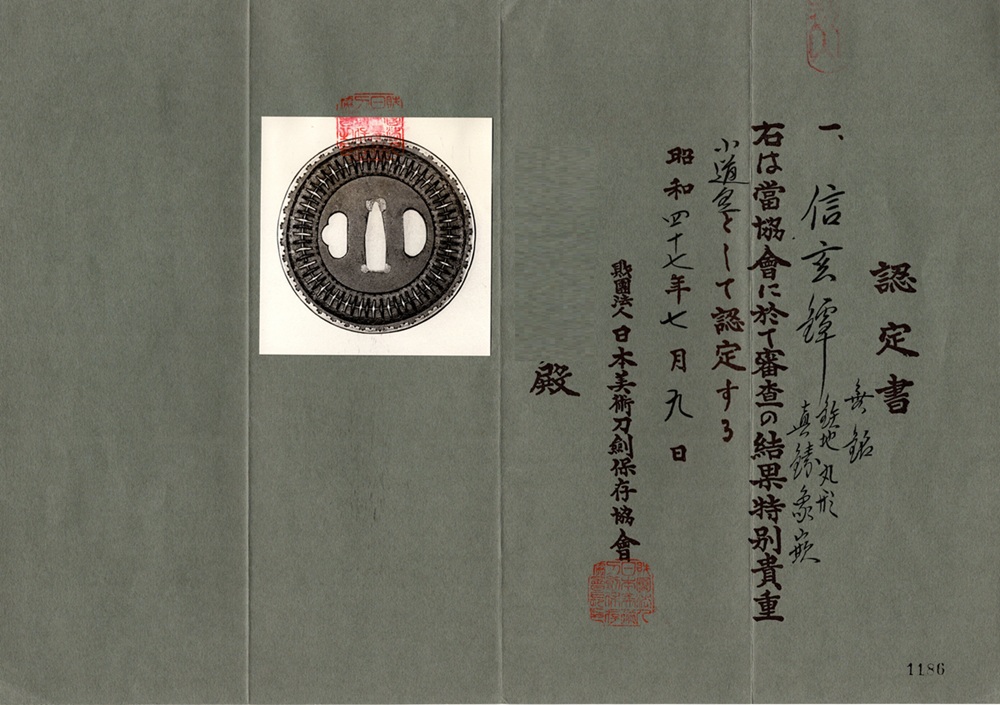 認定書
一、信玄鐔 無銘
鉄地丸形
真鍮象嵌
右は當協會に於て審査の結果特別貴重
小道具として認定する
昭和四十七年七月九日
財團法人日本美術刀劍保存協會
殿
1186